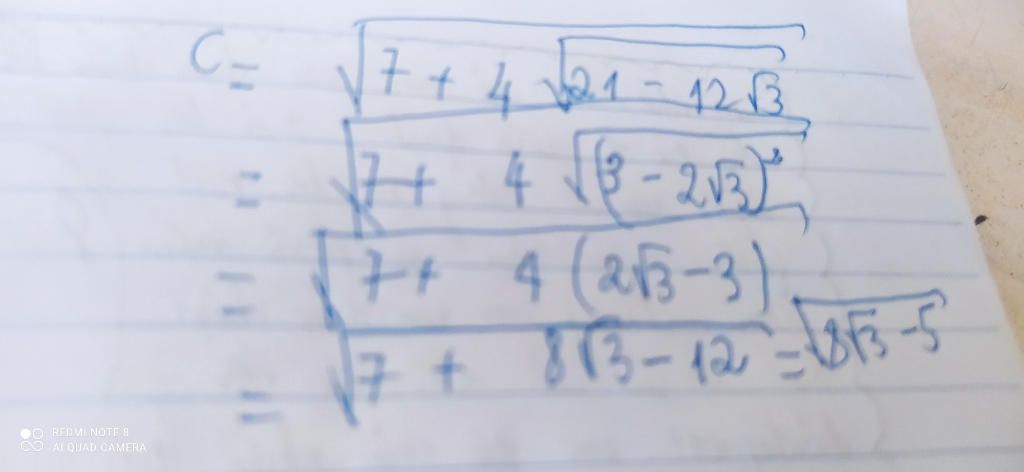 C = √(7 + 4 √(21 - 12√3))
= √(7 + 4 √((3 - 2√3)²))
= √(7 + 4 (2√3 - 3))
= √(7 + 8√3 - 12) = √(8√3 - 5)
REDMI NOTE 8
AI QUAD CAMERA